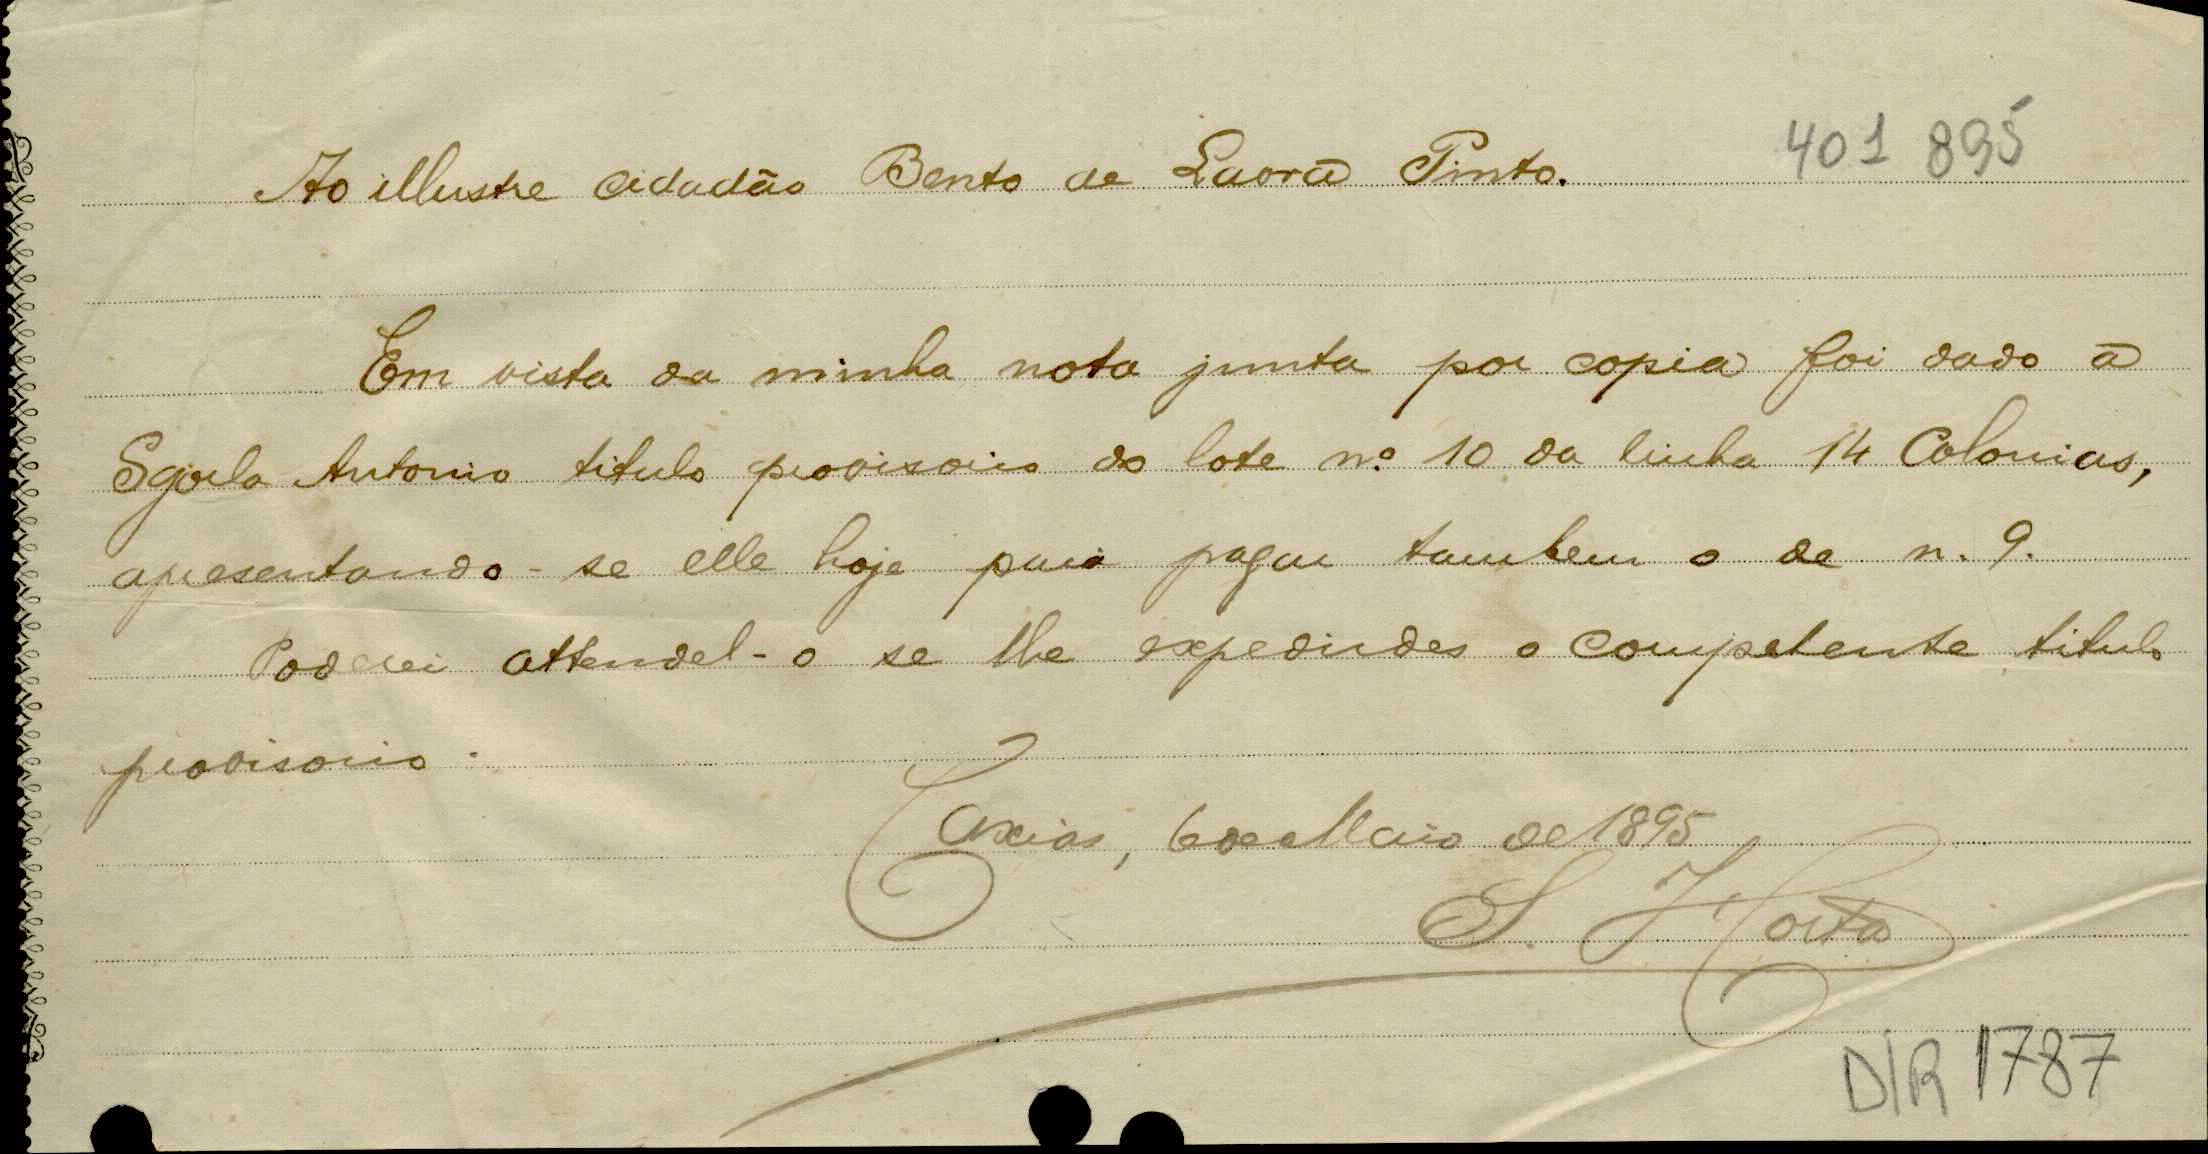 401 895
Ao illustre cidadão Bento de Lavrã Pinto.
Em vista da minha nota junta por copia foi dado á
Sgorla Antonio titulo provisorio do lote nº 10 da linha 14 Colonias,
apresentando-se elle hoje para pagar tambem o de n. 9.
Poderei attendel-o se lhe expedirdes o competente titulo
provisorio.
Caxias, 6 de Maio de 1895
S. J. Horta
DIR 1787